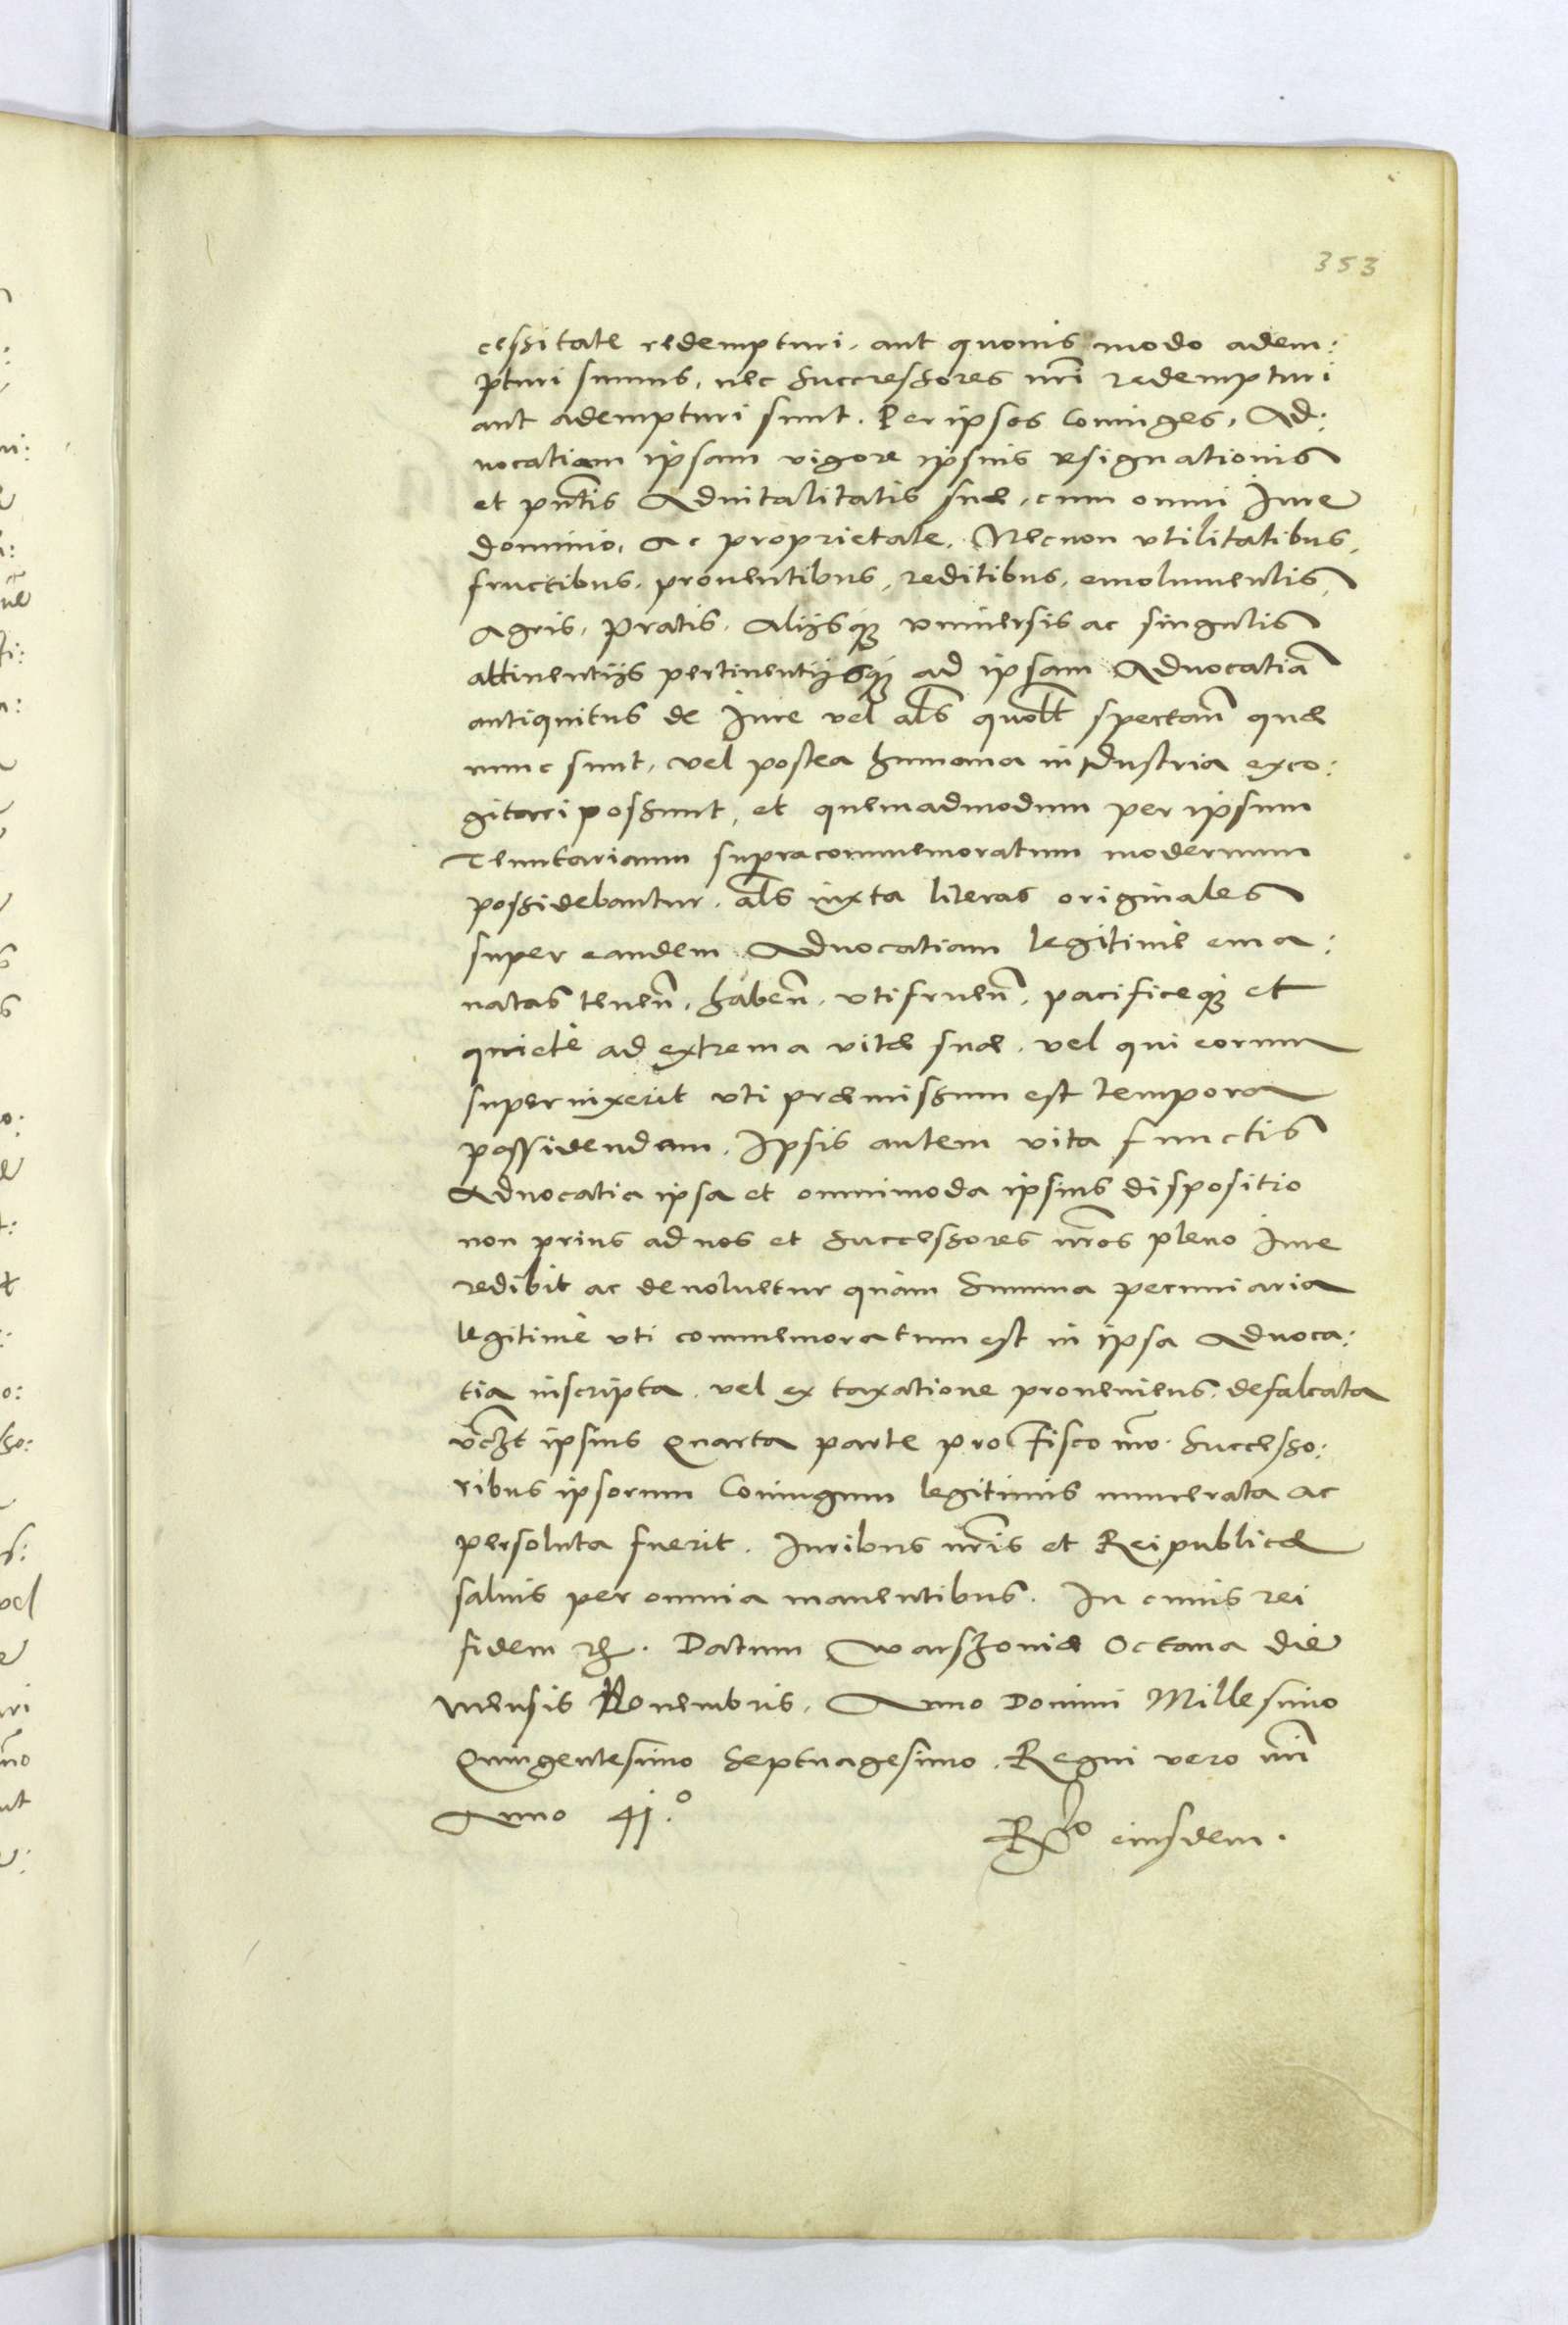 353
cessitate redempturi, aut quouis modo adem:
pturi sumus, nec Successores nri redempturi
aut adempturi sunt. Per ipsos Coniuges, Ad:
uocatiam ipsam vigore ipsius resignationis
et pntis Aduitalitatis suæ, cum omni Iure
dominio, ac proprietate, Necnon vtilitatibus,
fructibus, prouentibus, reditibus, emolumentis,
Agris, Pratis, Alijsq3 vniuersis ac singulis
attinentijs pertinentijsq3 ad ipsam Aduocatiã
antiquitus de Iure vel als quolt spectan quæ
nunc sunt, vel postea humana industria exco:
gitari possunt, et quemadmodum per ipsum
Tenutarium supracommemoratum modernum
possidebantur, als iuxta literas originales
super eandem Aduocatiam legitime ema:
natas tenen, haben, vtifruen, pacificeq3 et
quietè ad extrema vitæ suæ, vel qui eorum
superuixerit vti præmissum est tempora
possidendam. Ipsis autem vita functis
Aduocatia ipsa et omnimoda ipsius dispositio
non prius ad nos et Successores nros pleno Iure
redibit ac deuoluetur quàm Summa pecuniaria
legitimè vti commemoratum est in ipsa Aduoca:
tia inscripta, vel ex taxatione proueniens, defalcata
vczt ipsius Quarta parte pro Fisco nro Successo:
ribus ipsorum Coniugum legitimis numerata ac
persoluta fuerit. Iuribus nris et Reipublicæ
saluis per omnia manentibus. In cuius rei
fidem etc. Datum Warszouiæ Octaua die
mensis Nouembris, Anno Domini Millesimo
Quingentesimo Septuagesimo. Regni vero nri
Anno 41.º
Rº eiusdem.